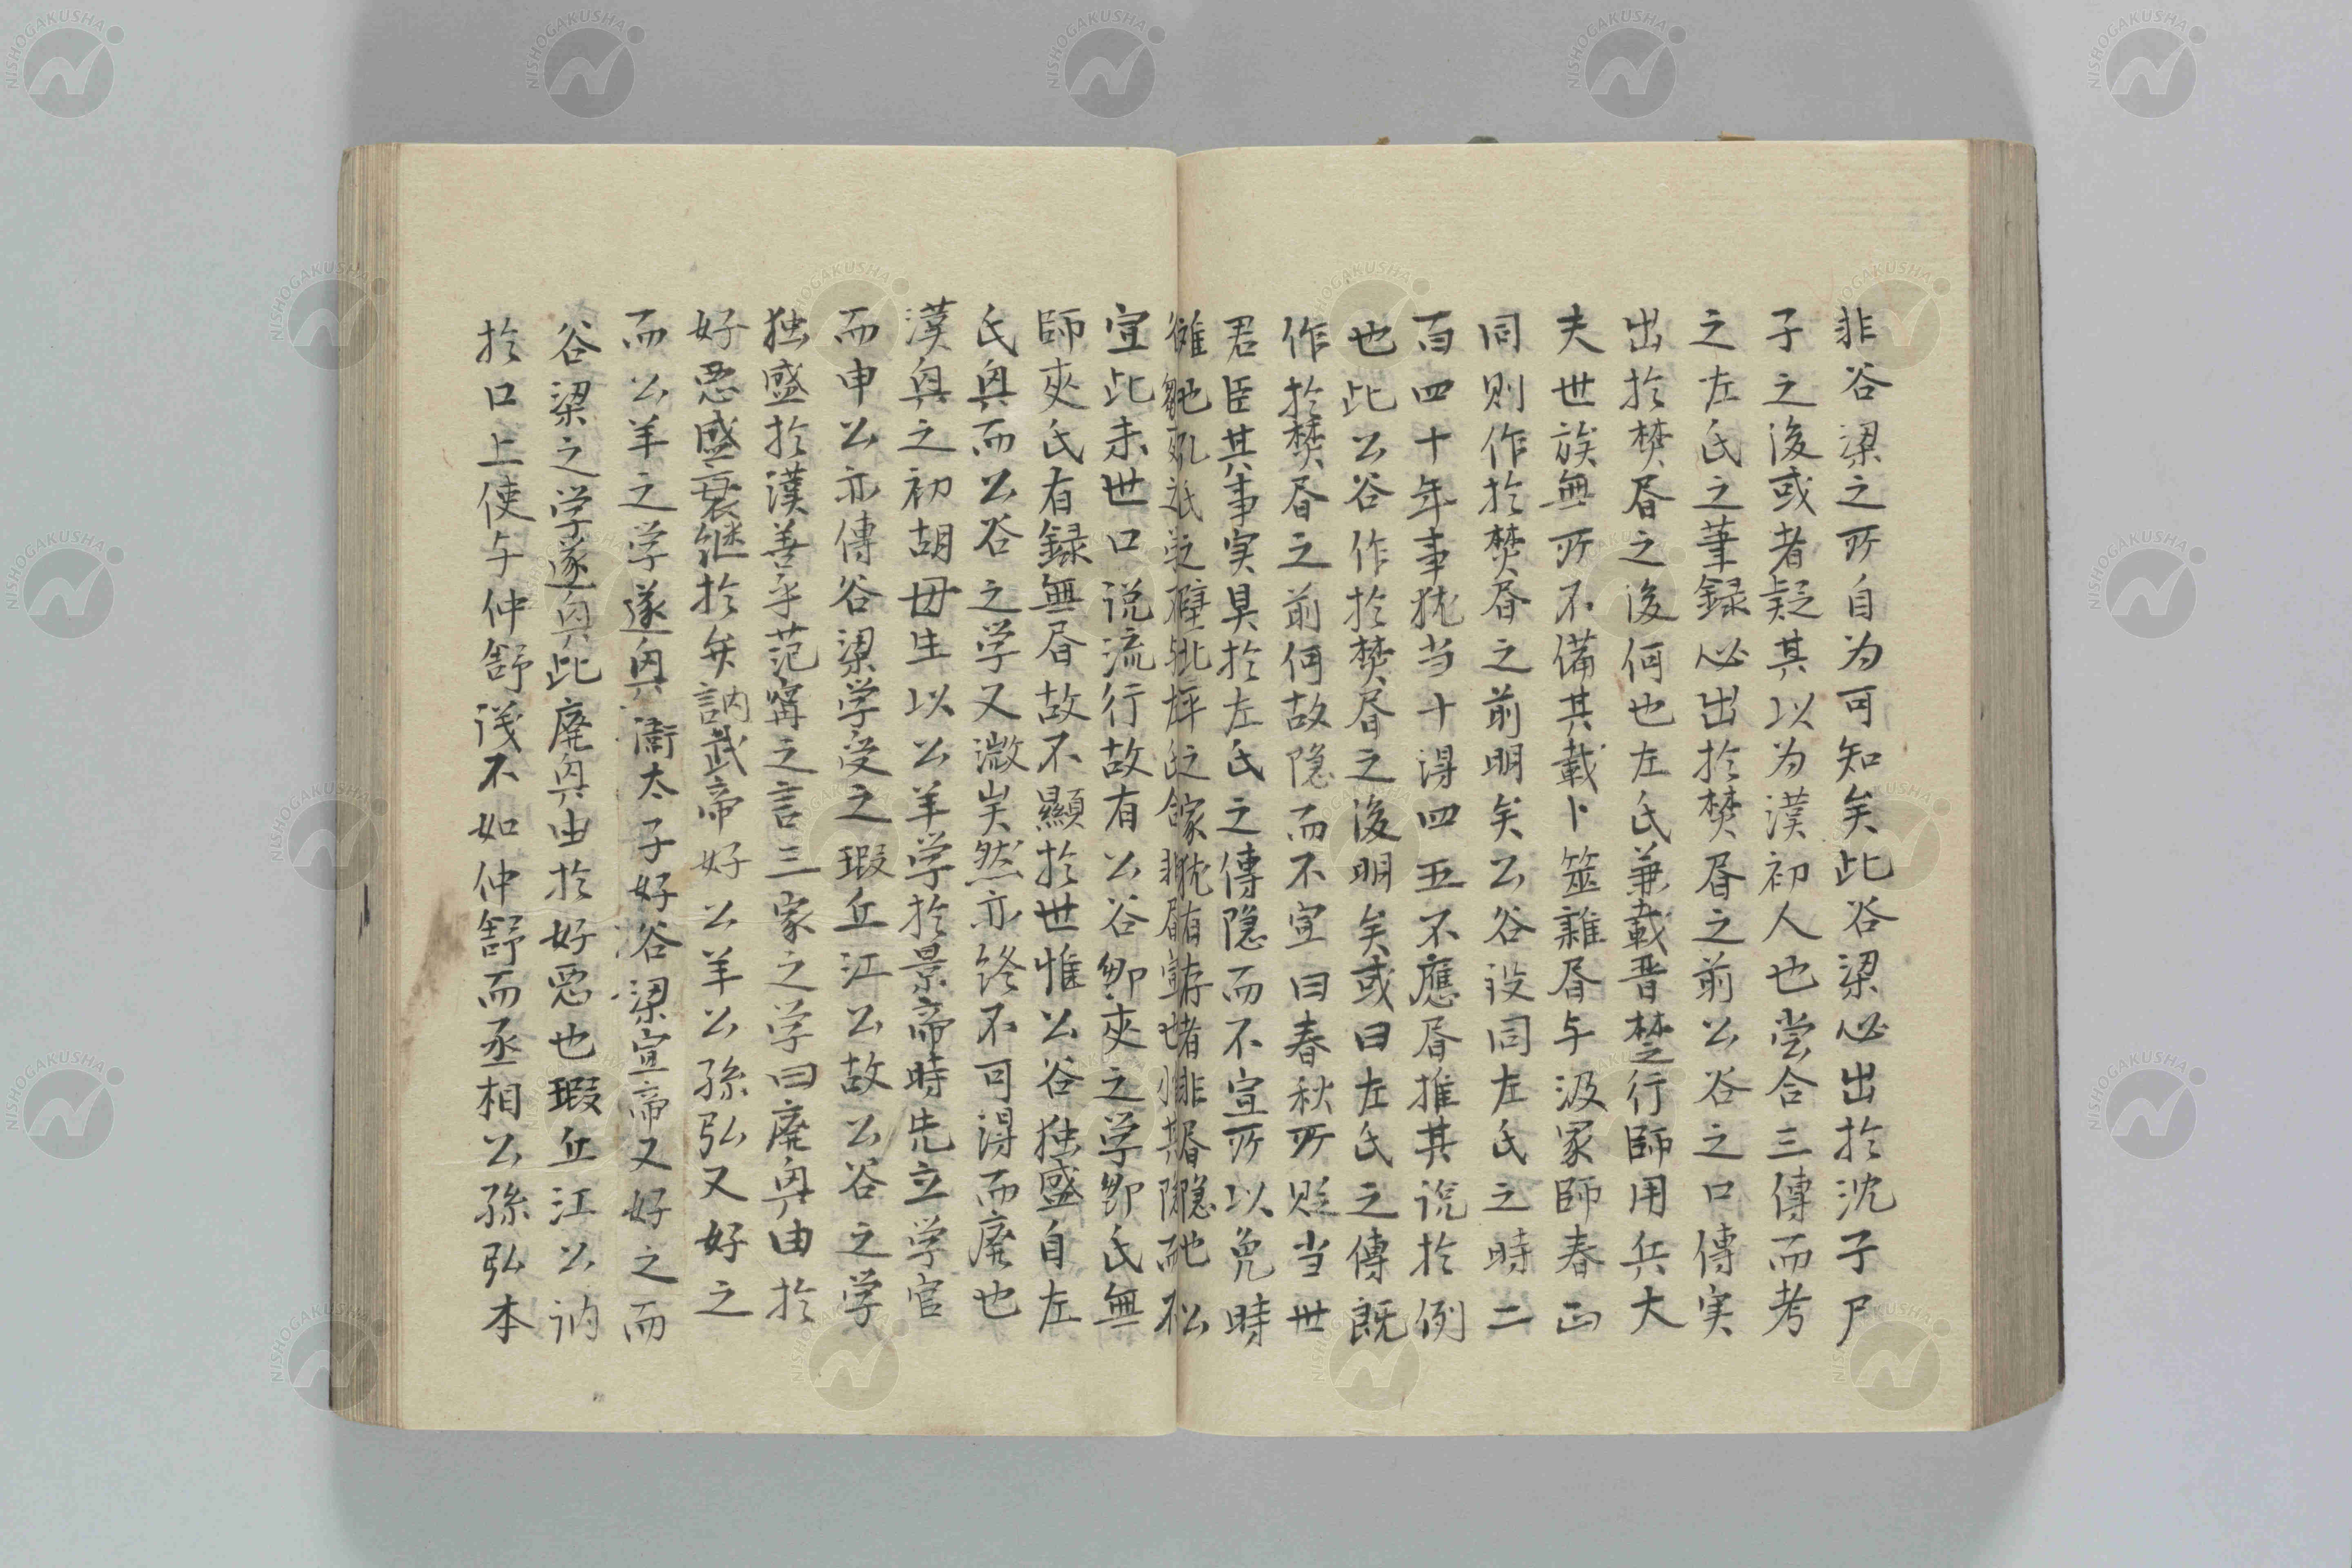 非谷梁之所自为可知矣此谷梁必出於沈子尸
子之後或者疑其以为漢初人也尝合三傳而考
之左氏之筆録必出於焚書之前公谷之口傳実
出於焚書之後何也左氏兼載晋楚之行師用兵大
夫世族無所不備其載卜筮雜書与汲冢師春正
同則作於焚書之前明矣公谷设同左氏之時二
百四十年事犹当十得四五不應書推其说於例
也此公谷作於焚書之後明矣或曰左氏之傳既
作於焚書之前何故隐而不宣曰春秋所贬当世
君臣其事実具於左氏之傳隐而不宣所以免時
宣此未世口说流行故有公谷邹夾之学邹氏無
師夾氏有録無書故不顯於世惟公谷独盛自左
氏興而公谷之学又微矣然亦终不可得而廃也
漢興之初胡毋生以公羊学於景帝時先立学官
而申公亦傳谷梁学受之瑕丘江公故公谷之学
独盛於漢善乎范甯之言三家之学曰廃興由於
好悪盛衰継於弁訥武帝好公羊公孫弘又好之
而公羊之学遂興衞太子好谷梁宣帝又好之而
谷梁之学遂興此廃興由於好悪也瑕丘江公讷
於口上使与仲舒议不如仲舒而丞相公孫弘本
NISHOGAKUSHA